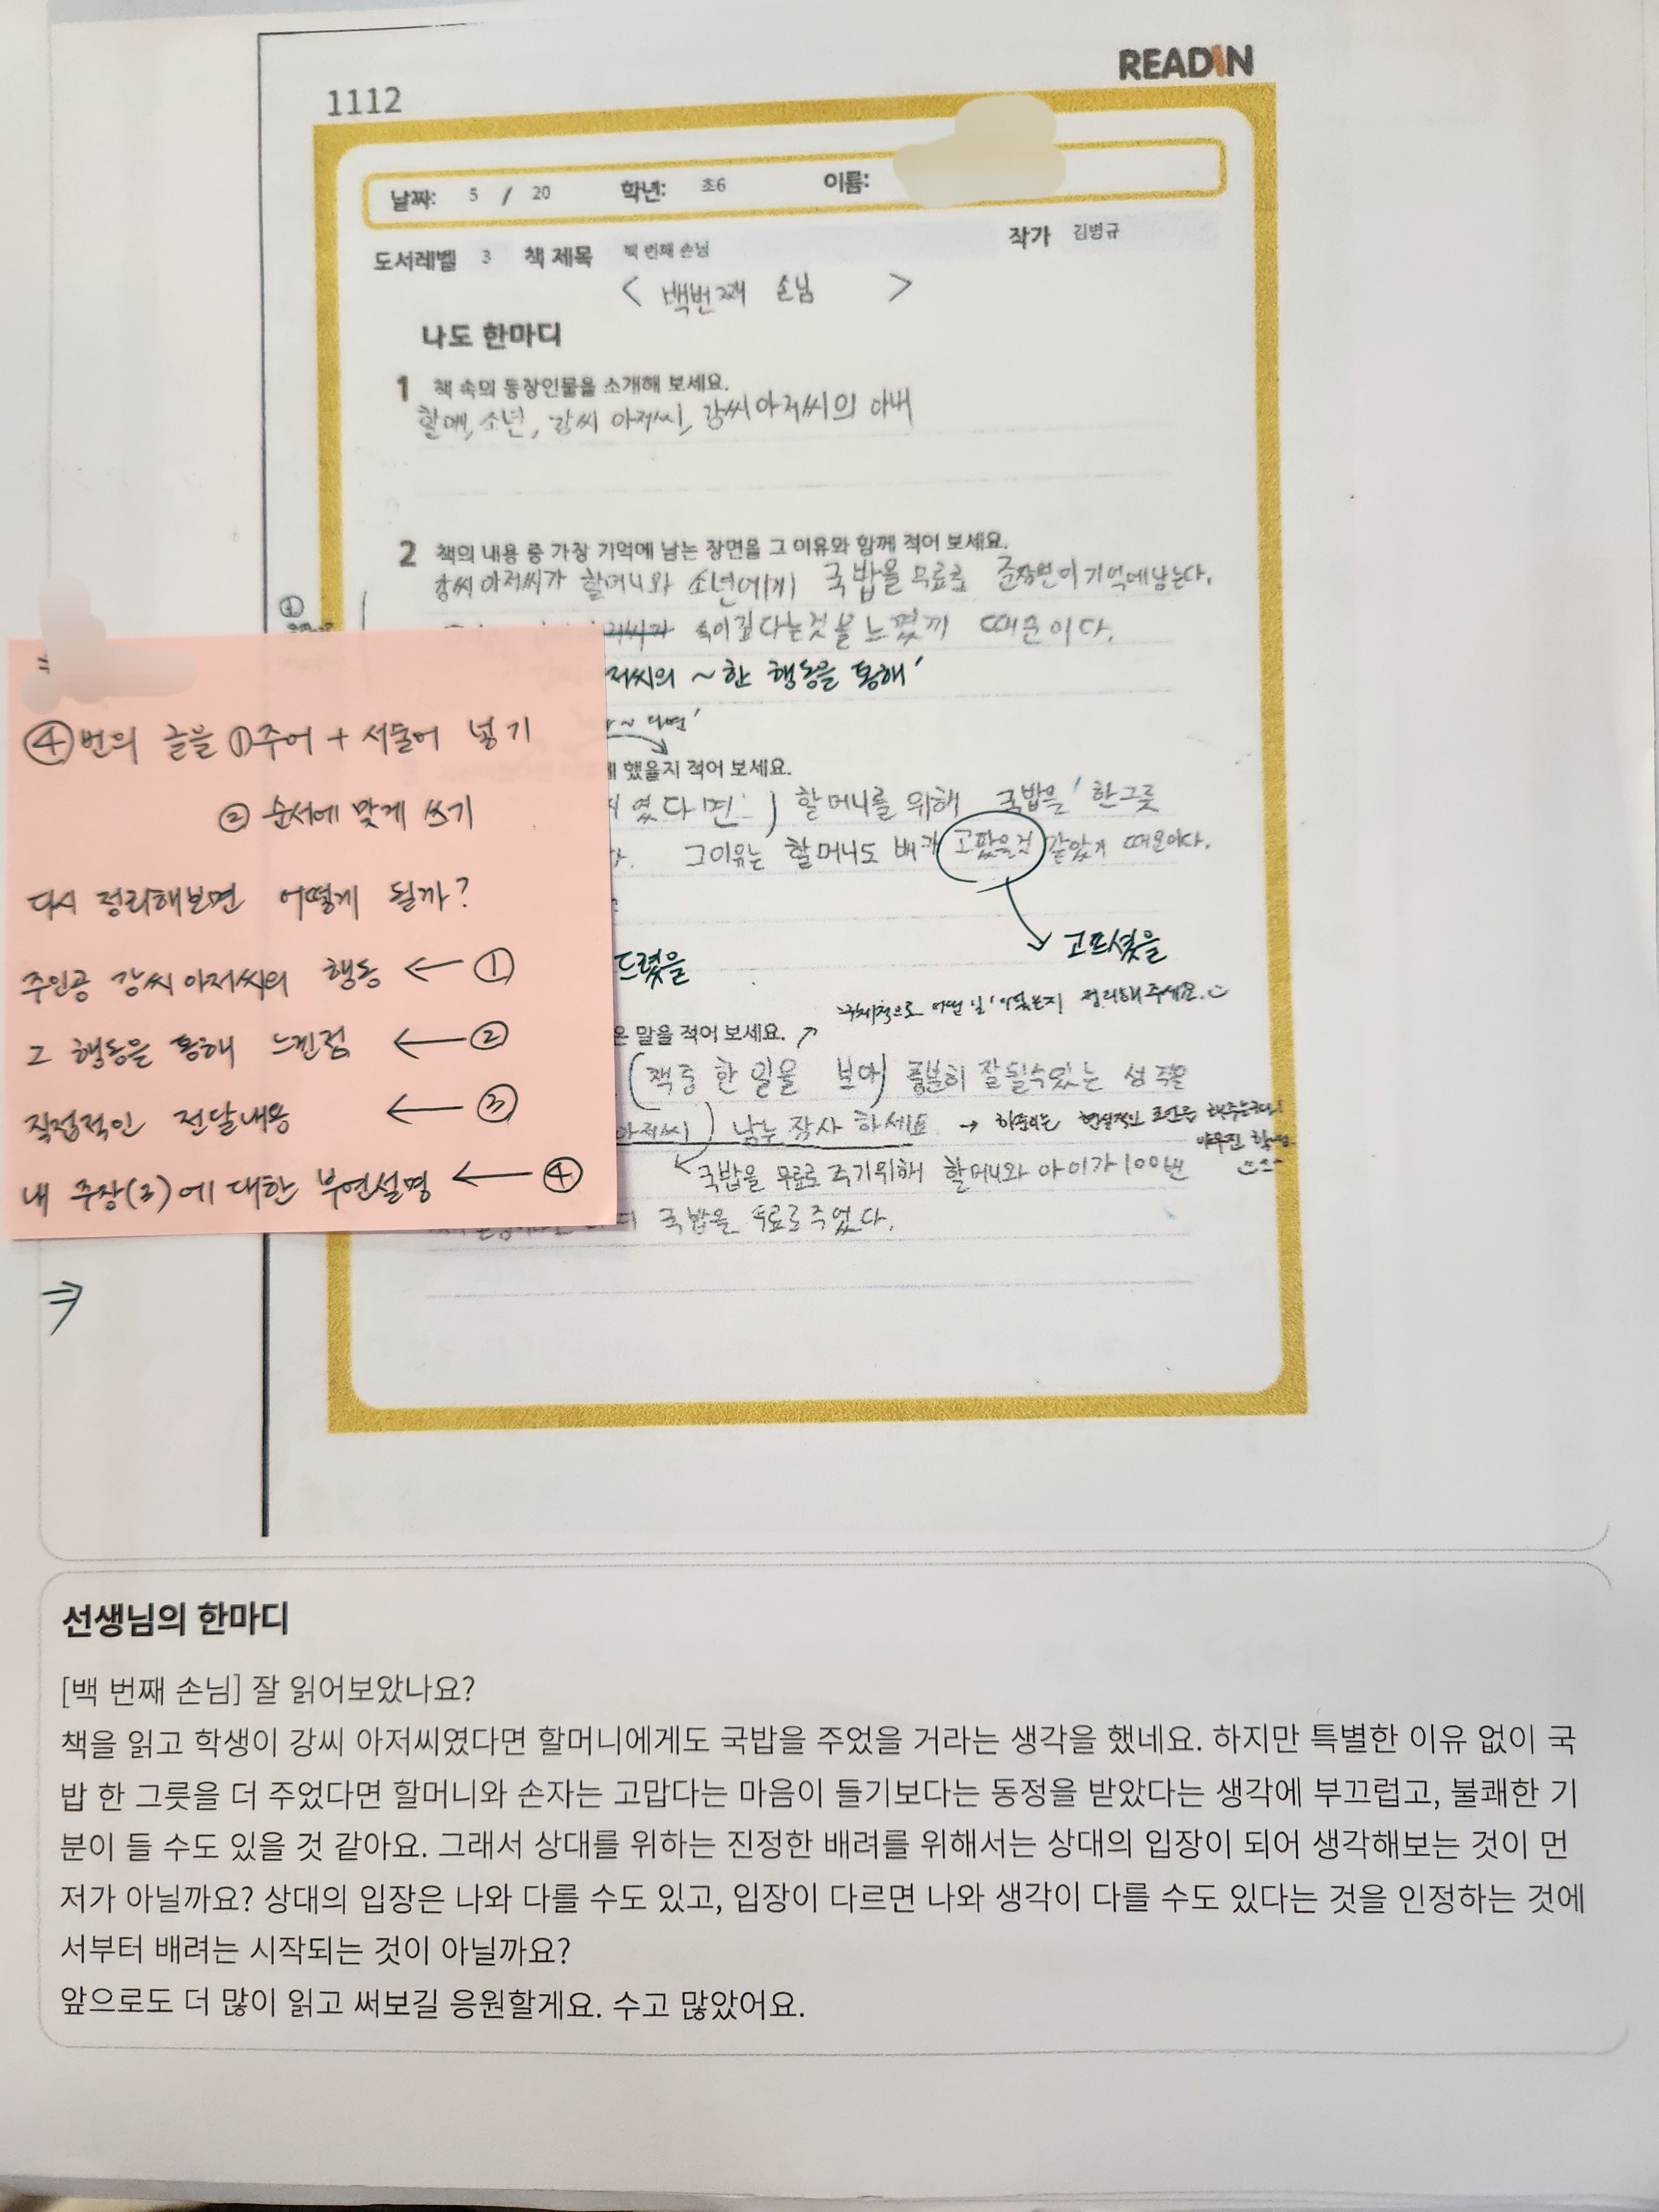 READIN
1112
날짜: 5 / 20 학년: 초6 이름:
도서레벨 3 책 제목 백 번째 손님 작가 김병규
< 백번째 손님 >
나도 한마디
1 책 속의 등장인물을 소개해 보세요.
할매, 소년, 강씨 아저씨, 강씨아저씨의 아내
2 책의 내용 중 가장 기억에 남는 장면을 그 이유와 함께 적어 보세요.
강씨 아저씨가 할머니와 소년에게 국밥을 무료로 준장면이 기억에남는다.
①
속이깊다는것을 느꼈기 때문이다.
저씨의 ~한 행동을 통해'
~ 다면'
했을지 적어 보세요.
였다면 ) 할머니를 위해 국밥을 한그릇
그이유는 할머니도 배가 고팠을것 같았기 때문이다.
드렸을
고프셨을
구체적으로 어떤 일이 있는지 정리해 주세요.
말을 적어 보세요.
(책중 한 일을 보아) 충분히 잘될수있는 성격을
아저씨) 남는 장사 하세요 → 하준이는 현실적인 조언을 해주는구나!
국밥을 무료로 주기위해 할머니와 아이가 100번
국밥을 무료로주었다.
④번의 글을 ①주어 + 서술어 넣기
② 순서에 맞게 쓰기
다시 정리해보면 어떻게 될까?
주인공 강씨 아저씨의 행동 ← ①
그 행동을 통해 느낀점 ← ②
직접적인 전달내용 ← ③
내 주장(3)에 대한 부연설명 ← ④
⇒
선생님의 한마디
[백 번째 손님] 잘 읽어보았나요?
책을 읽고 학생이 강씨 아저씨였다면 할머니에게도 국밥을 주었을 거라는 생각을 했네요. 하지만 특별한 이유 없이 국
밥 한 그릇을 더 주었다면 할머니와 손자는 고맙다는 마음이 들기보다는 동정을 받았다는 생각에 부끄럽고, 불쾌한 기
분이 들 수도 있을 것 같아요. 그래서 상대를 위하는 진정한 배려를 위해서는 상대의 입장이 되어 생각해보는 것이 먼
저가 아닐까요? 상대의 입장은 나와 다를 수도 있고, 입장이 다르면 나와 생각이 다를 수도 있다는 것을 인정하는 것에
서부터 배려는 시작되는 것이 아닐까요?
앞으로도 더 많이 읽고 써보길 응원할게요. 수고 많았어요.